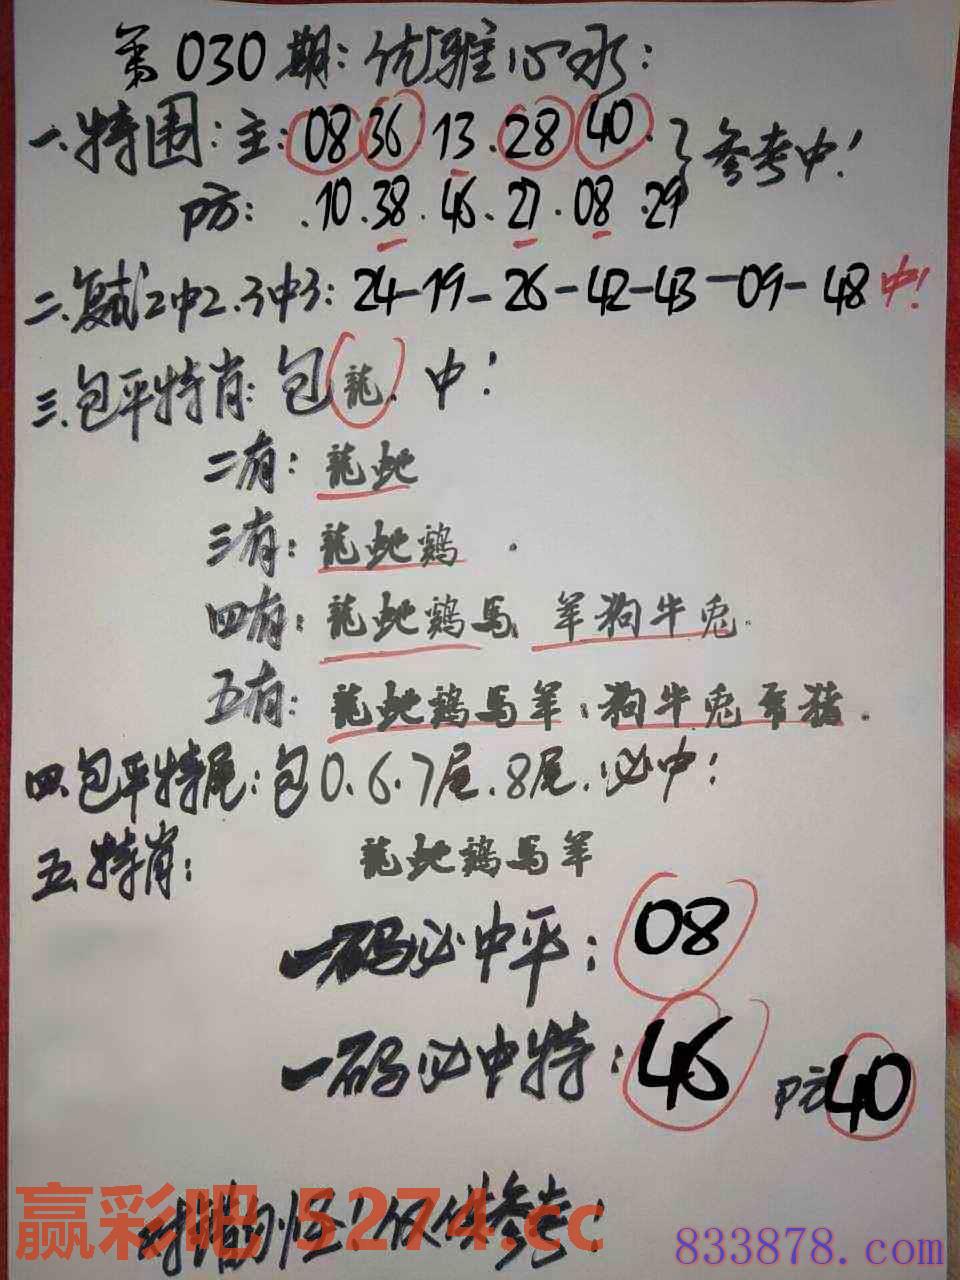 第030期：优雅心水：
一.特围：主：08 36.13.28 40.}参考中！
防：.10.38.46.27.08.29
二.复试2中2.3中3：24-19-26-42-43-09-48中！
三.包平特肖：包龍.中！
二有：龍蛇
三有：龍蛇鷄.
四有：龍蛇鷄馬 羊狗牛兎.
五有：龍蛇鷄馬羊：狗牛兎 猪.
四.包平特尾：包0.6.7尾.8尾.必中！
五.特肖：龍蛇鷄馬羊
一码必中平：08
一码必中特：46 防40
对错勿怪！仅供参考！
赢彩吧 5274.cc
833878.com